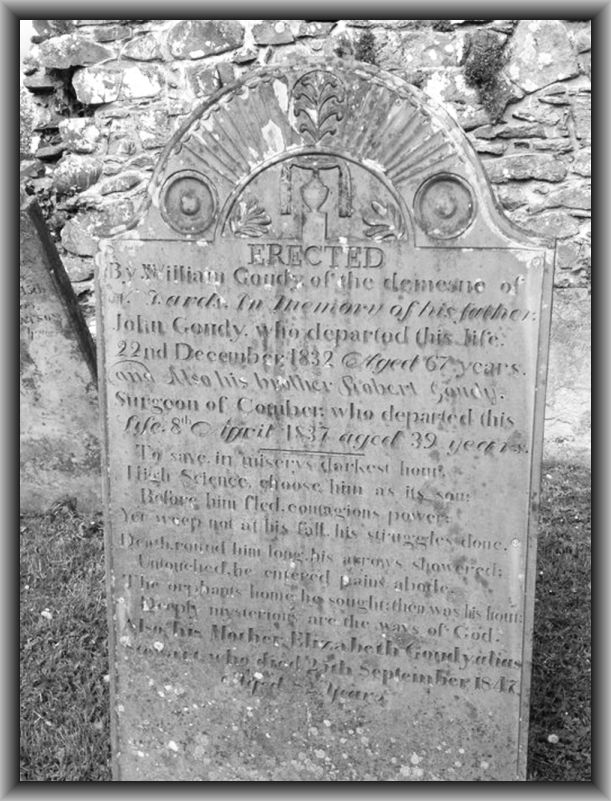 ERECTED
By William Goudy, of the demesne of
N. Tards. In Memory of his father,
John Goudy, who departed this life,
22nd December, 1832 Aged 67 years.
and Also his brother Robert Goudy,
Surgeon of Comber, who departed this
life, 8th April 1837 aged 39 years.
To save, in miserys darkest hour,
High Science, choose him as its son;
Before him fled, contagions power;
Yet weep not at his fall, his struggles done.
Death, round him long, his arrows showered;
Untouched, he entered pains abode,
The orphants home he sought; then was his hour;
Deeply mysterious are the ways of God.
Also his Mother Elizabeth Goudy, alias
who died 25th September 1847,
Aged Years